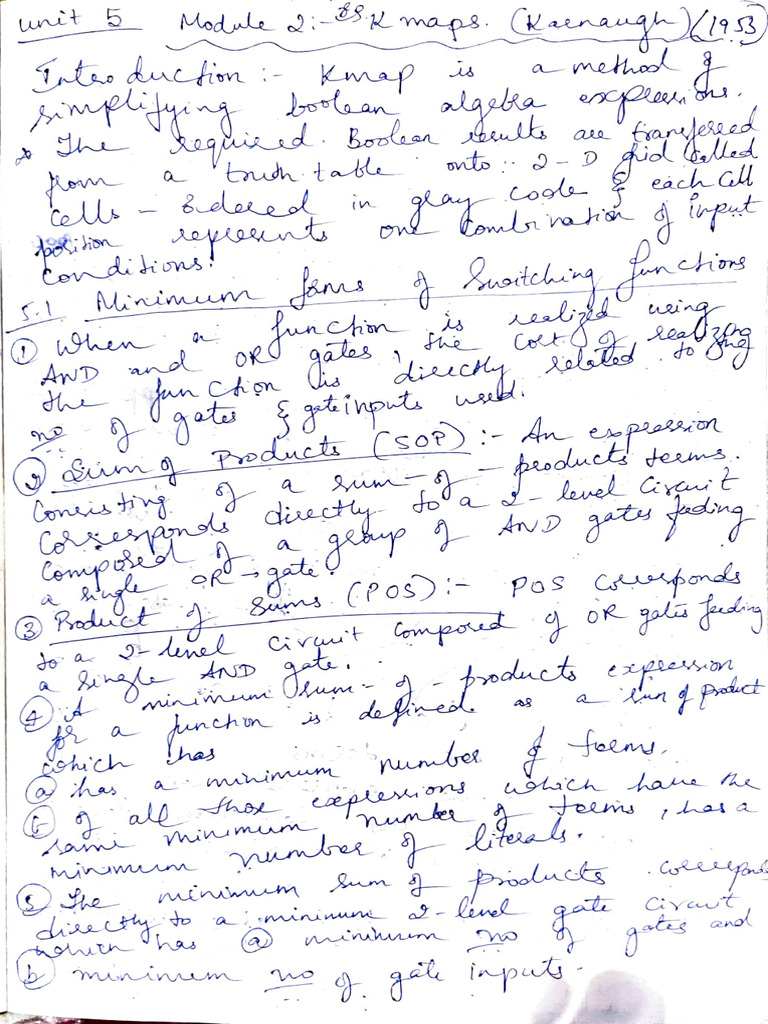 unit 5 Module 2:- K maps. (Karnaugh) (1953)
Introduction :- Kmap is a method of
simplifying boolean algebra expressions.
The required Boolean results are transferred
from a truth table onto 2-D grid called
cells - ordered in gray code & each cell
position represents one combination of input
conditions.
5.1 Minimum forms of Switching functions
① When a function is realized using
AND and OR gates, the cost of realizing
the function is directly related to the
no of gates & gate inputs used.
② Sum of Products (SOP) :- An expression
consisting of a sum-of-products terms.
corresponds directly to a 2-level circuit
composed of a group of AND gates feeding
a single OR → gate.
③ Product of Sums (POS) :- POS corresponds
to a 2-level circuit composed of OR gates feeding
a single AND gate.
④ A minimum sum-of-products expression
for a function is defined as a sum of product
which has
ⓐ has a minimum number of terms.
of all those expressions which have the
same minimum number of terms, has a
minimum number of literals.
⑤ The minimum sum of products corresponds
directly to a minimum 2-level gate circuit
which has ⓐ minimum no of gates and
ⓑ minimum no of gate inputs.